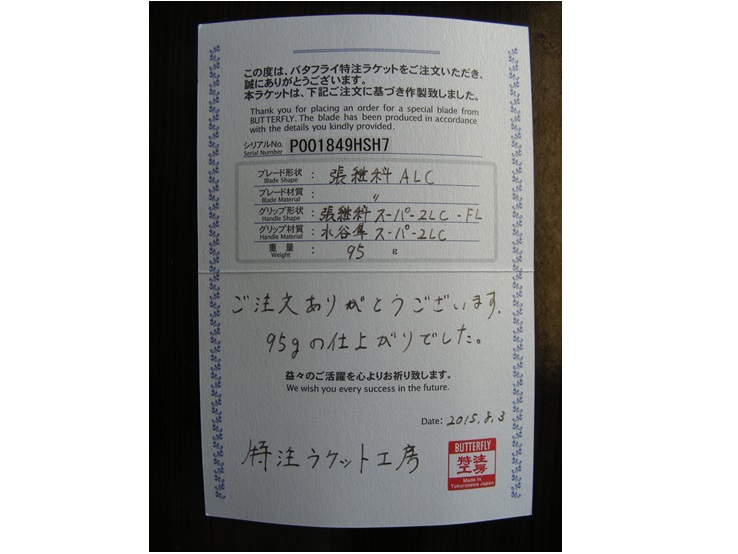 この度は、バタフライ特注ラケットをご注文いただき、
誠にありがとうございます。
本ラケットは、下記ご注文に基づき作製致しました。
Thank you for placing an order for a special blade from
BUTTERFLY. The blade has been produced in accordance
with the details you kindly provided.
シリアルNo. P001849HSH7
Serial Number
ブレード形状 : 張継科 ALC
Blade Shape
ブレード材質 : 〃
Blade Material
グリップ形状 : 張継科 スーパーZLC - FL
Handle Shape
グリップ材質 : 水谷隼 スーパーZLC
Handle Material
重量 : 95 g
Weight
ご注文ありがとうございます.
95gの仕上がりでした。
益々のご活躍を心よりお祈り致します。
We wish you every success in the future.
Date: 2015.8.3
特注ラケット工房
BUTTERFLY
特注
工房
Made in
Tokorozawa Japan